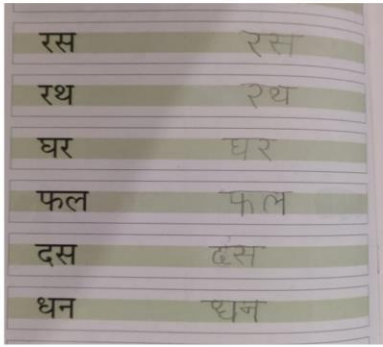 रस रस
रथ रथ
घर घर
फल फल
दस दंस
धन धन